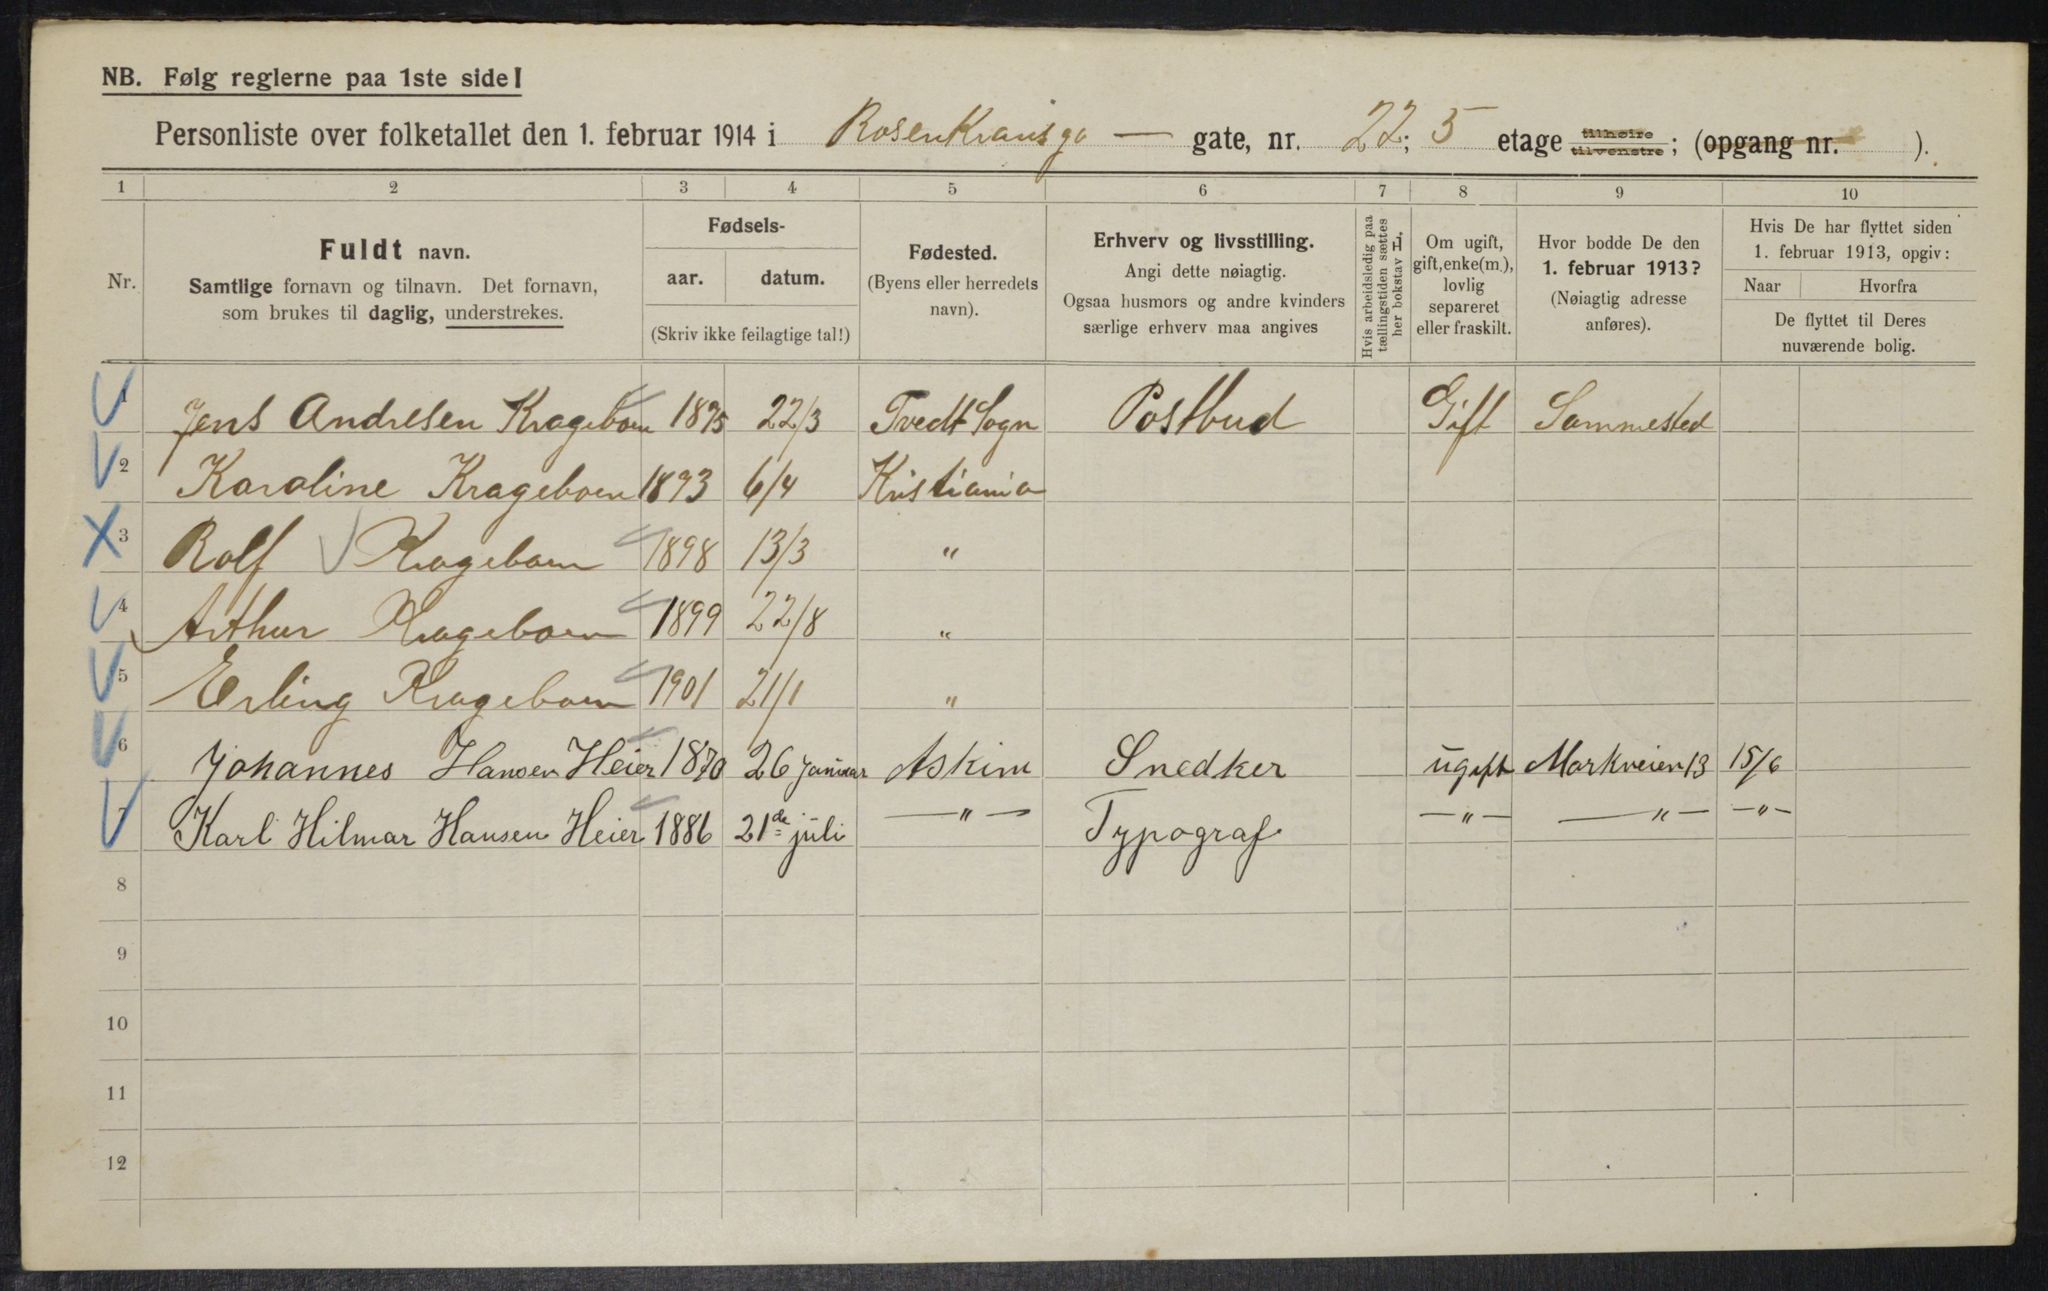 NB. Følg reglerne paa 1ste side!
Personliste over folketallet den 1. februar 1914 i Rosenkransga — gate, nr. 22; 5 etage tilhøire tilvenstre; (opgang nr. ).
1 2 3 4 5 6 7 8 9 10
Nr.
Fuldt navn.
Samtlige fornavn og tilnavn. Det fornavn,
som brukes til daglig, understrekes.
Fødsels-
aar. datum.
(Skriv ikke feilagtige tal!)
Fødested.
(Byens eller herredets
navn).
Erhverv og livsstilling.
Angi dette nøiagtig.
Ogsaa husmors og andre kvinders
særlige erhverv maa angives
Hvis arbeidsledig paa
tællingstiden sættes
her bokstav L.
Om ugift,
gift, enke(m.),
lovlig
separeret
eller fraskilt.
Hvor bodde De den
1. februar 1913?
(Nøiagtig adresse
anføres).
Hvis De har flyttet siden
1. februar 1913, opgiv:
Naar Hvorfra
De flyttet til Deres
nuværende bolig.
1 Jens Andresen Krageboen 1875 22/3 Tvedt Sogn Postbud Gift Sammested
2 Karoline Krageboen 1893 6/4 Kristiania
3 Rolf Krageboen 1898 13/3 "
4 Arthur Krageboen 1899 22/8 "
5 Erling Krageboen 1901 21/1 "
6 Johannes Hansen Heier 1870 26 januar Askim Snedker ugift Markveien 13 15/6
7 Karl Hilmar Hansen Heier 1886 21de juli —"— Typograf —"— —"— —"—
8
9
10
11
12